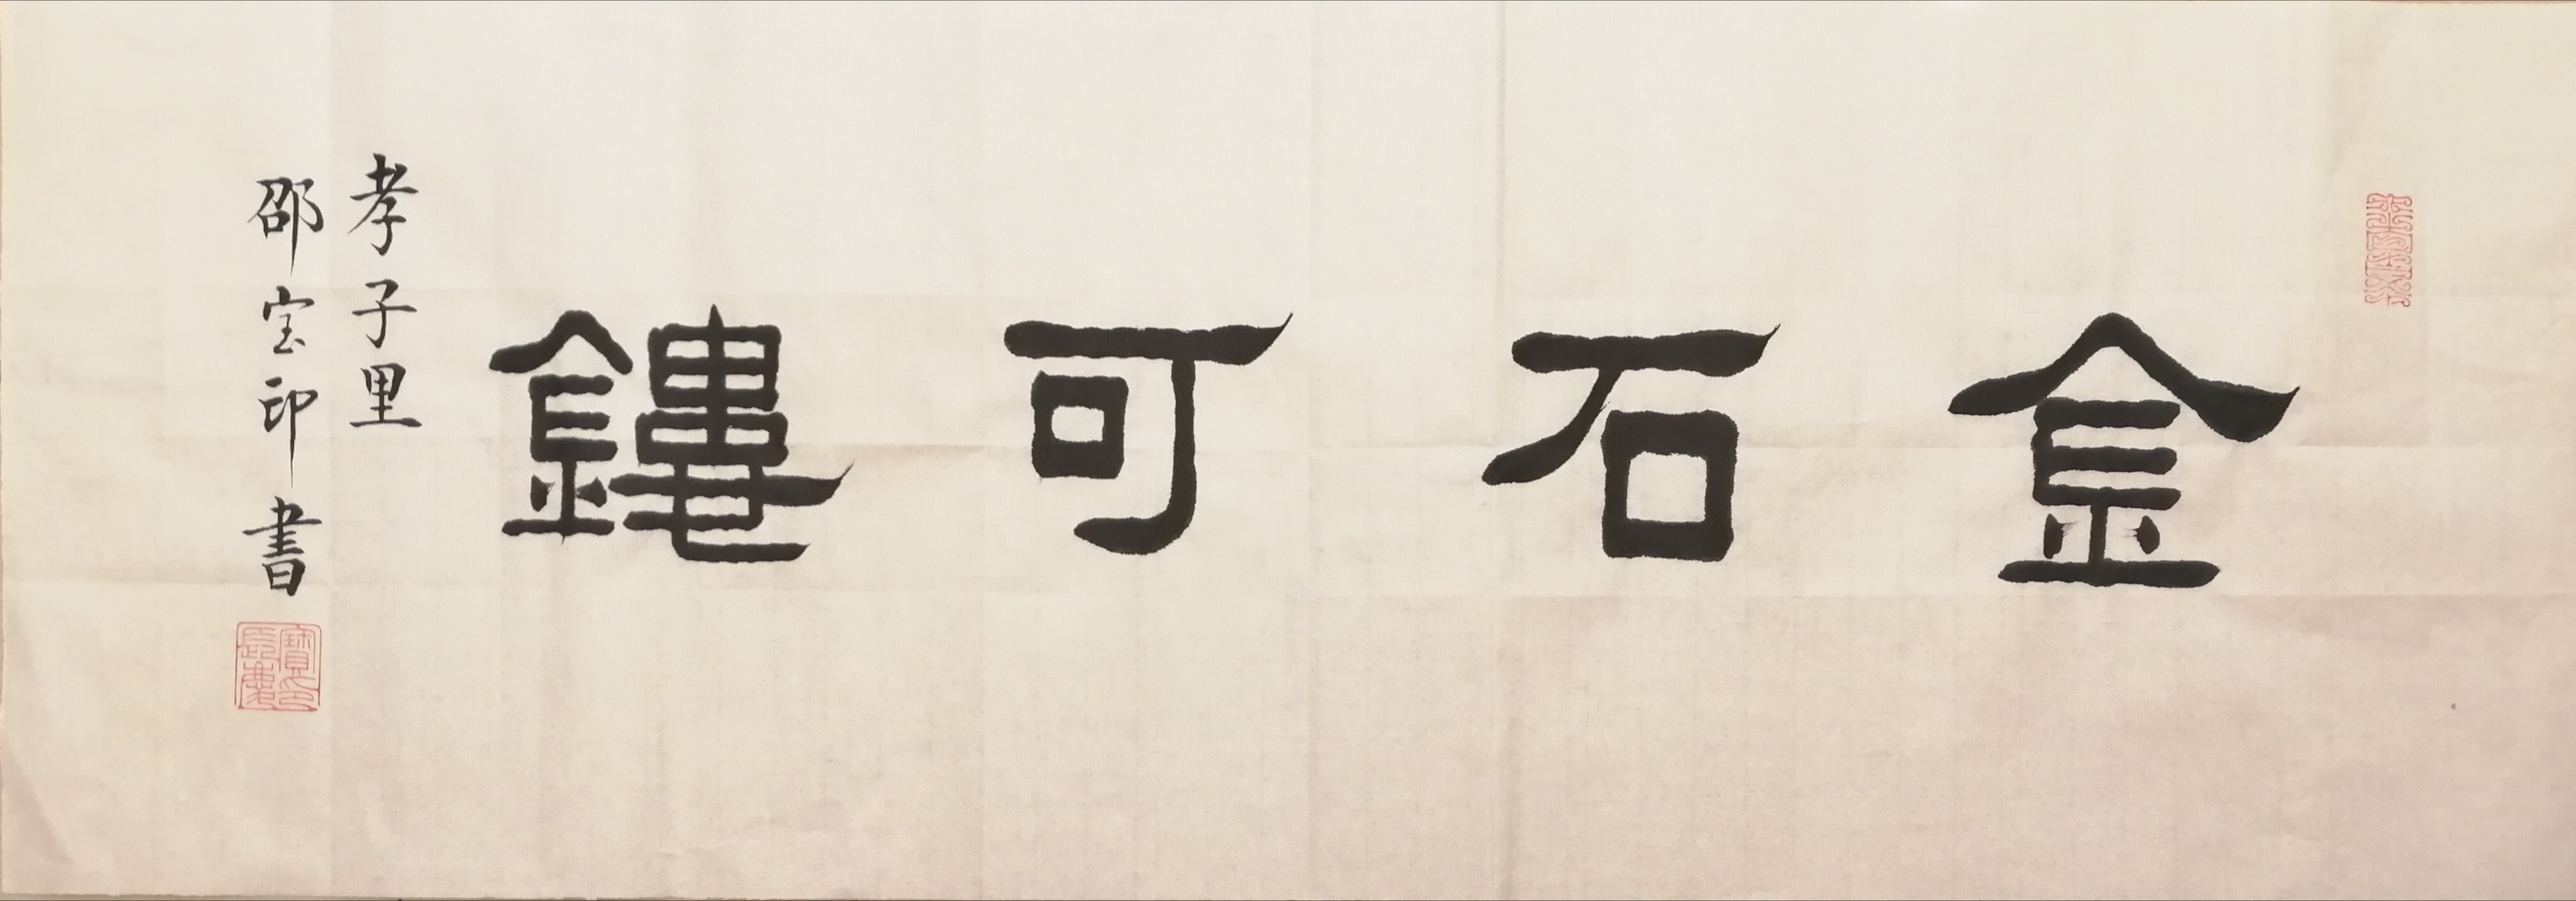 金石可鏤
孝子里
邵宝印書